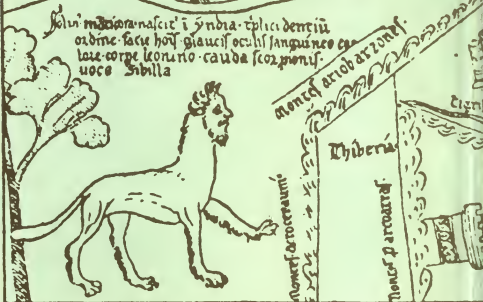 Soliñ mãticora nascit' i yndia tp̃lici dentiũ
ordine facie hoĩs glaucis oculis sanguineo co
lore corpe leonino cauda scorpionis
voce Sibilla
montes ariobarzones
Thiberia
montes
montes